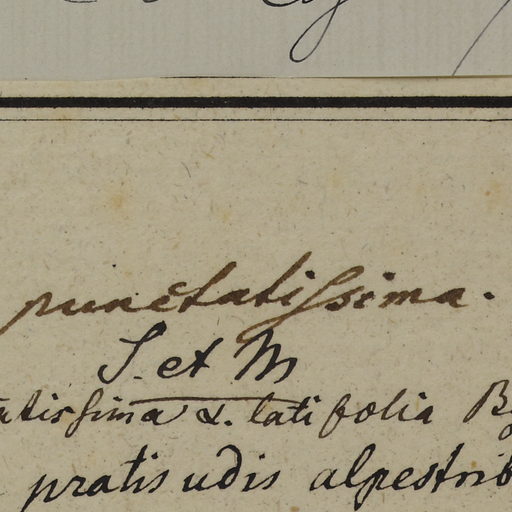 punctatissima.
S. et M
atissima α. latifolia
pratis udis alpestrib